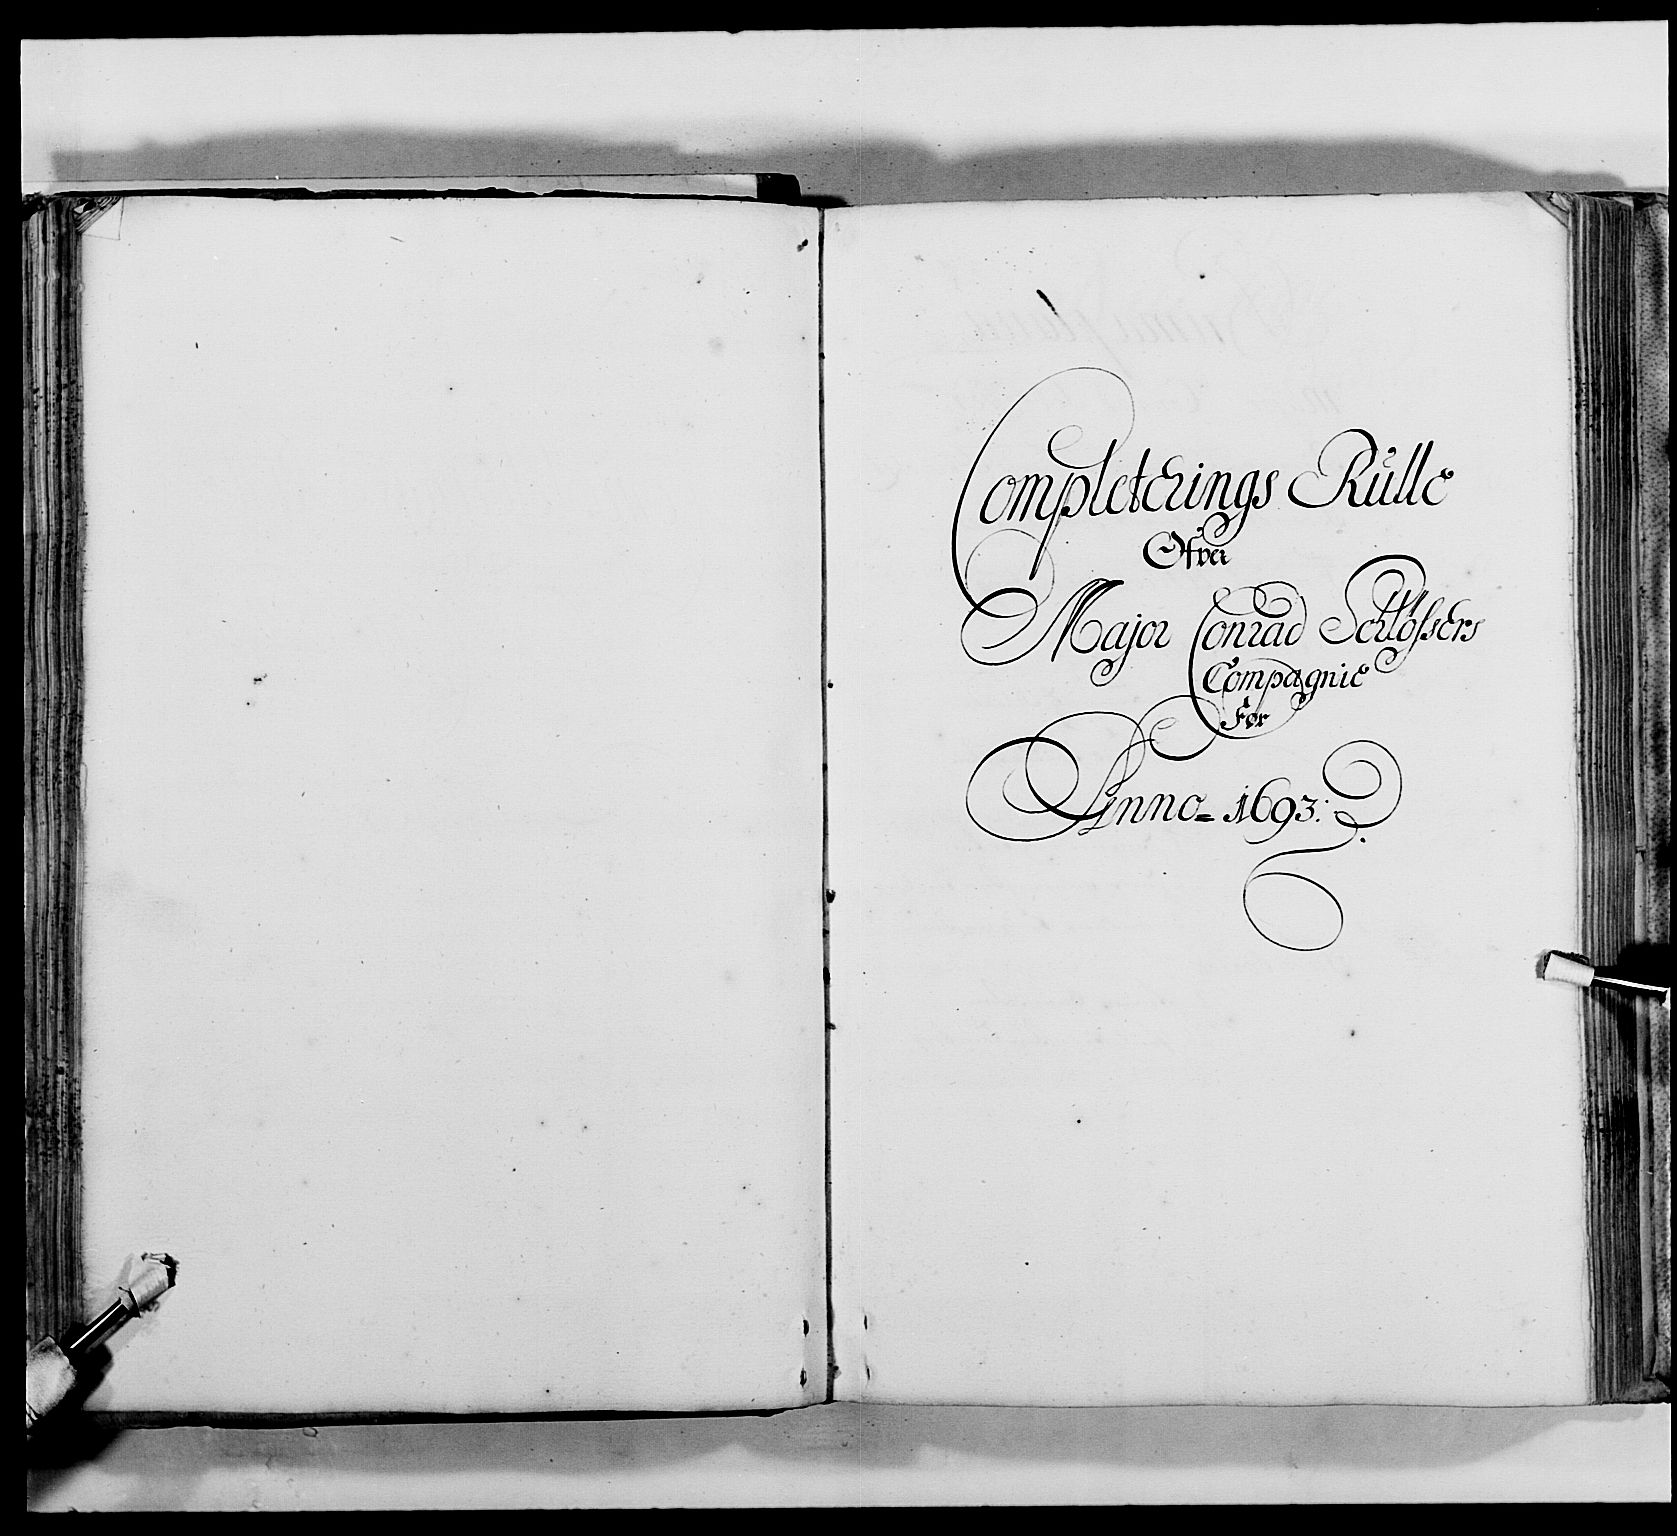 Completerings Rulle
Öfver
Major Conrad Schlössers
Compagnie
För
Anno = 1693: